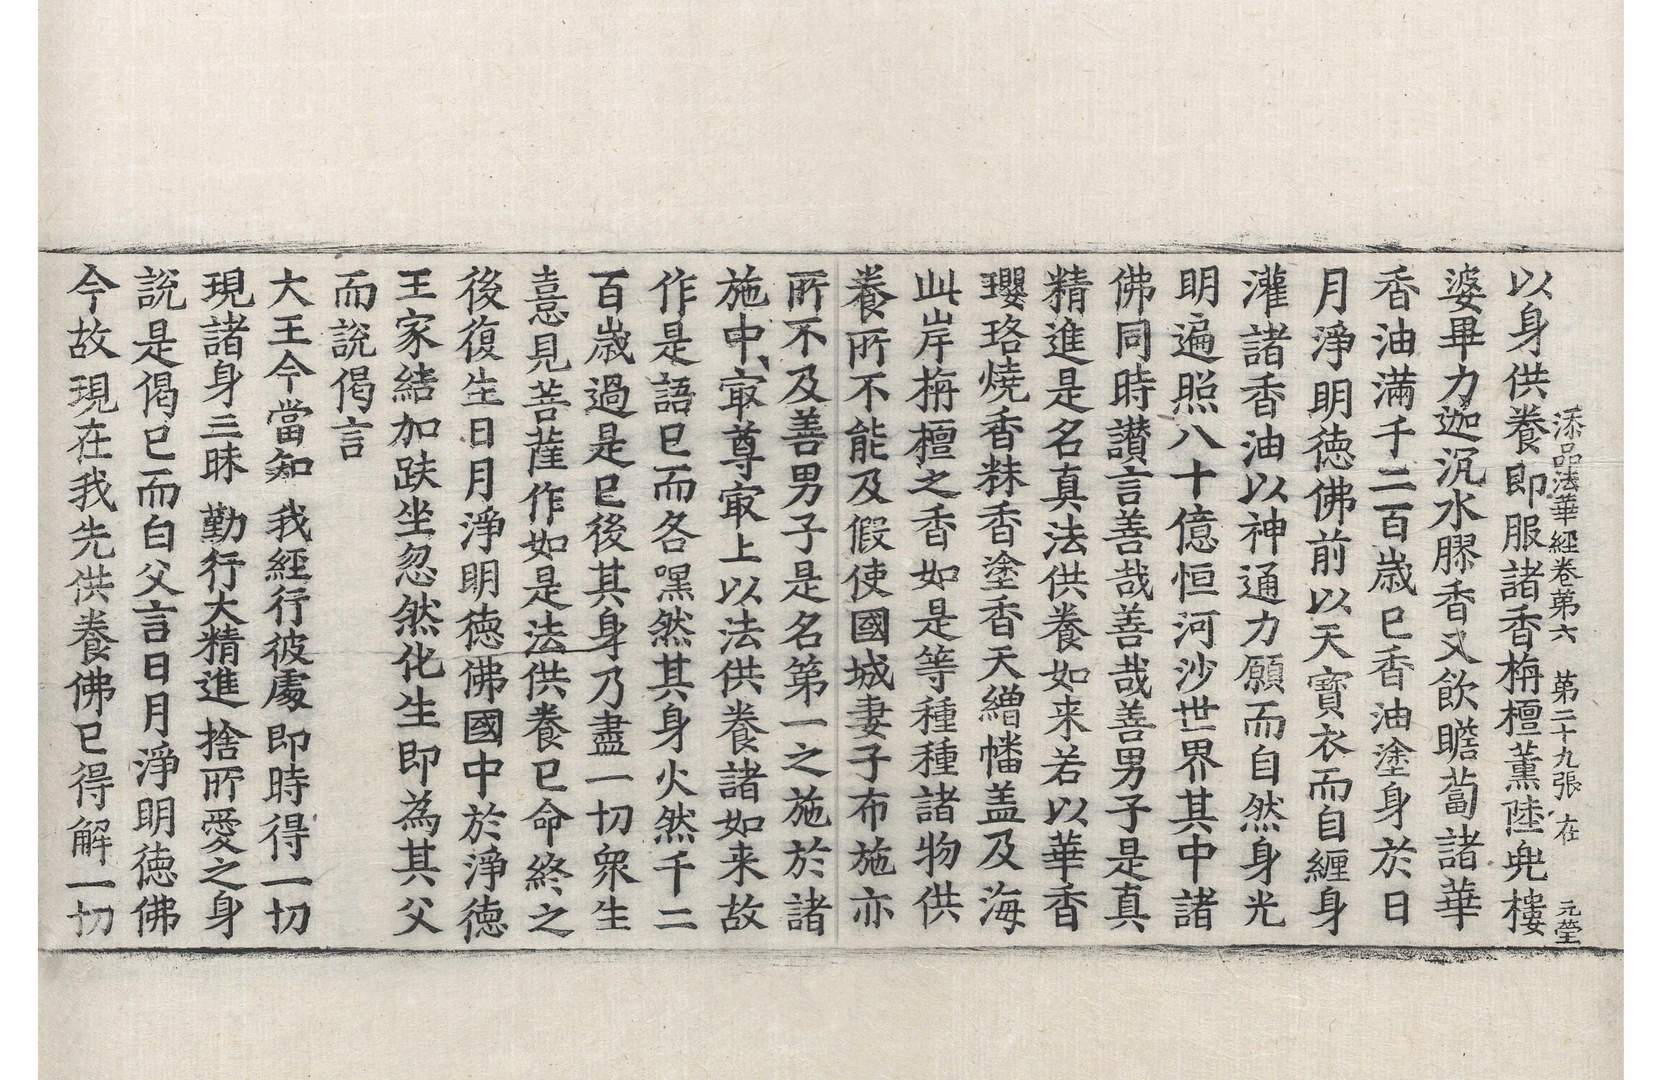 添品法華經卷第六 第二十九張 在 元瑩
以身供養即服諸香栴檀薰陸兜樓
婆畢力迦沉水膠香又飲瞻蔔諸華
香油滿千二百歲已香油塗身於日
月淨明德佛前以天寶衣而自纏身
灌諸香油以神通力願而自然身光
明遍照八十億恒河沙世界其中諸
佛同時讚言善哉善哉善男子是真
精進是名真法供養如来若以華香
瓔珞燒香粖香塗香天繒幡盖及海
此岸栴檀之香如是等種種諸物供
養所不能及假使國城妻子布施亦
所不及善男子是名第一之施於諸
施中、㝡尊㝡上以法供養諸如来故
作是語已而各嘿然其身火然千二
百歲過是已後其身乃盡一切衆生
憙見菩薩作如是法供養已命終之
後復生日月淨明德佛國中於淨德
王家結加趺坐忽然化生即為其父
而說偈言
大王今當知 我經行彼處 即時得一切
現諸身三昧 勤行大精進 捨所愛之身
說是偈已而白父言日月淨明德佛
今故現在我先供養佛已得解一切